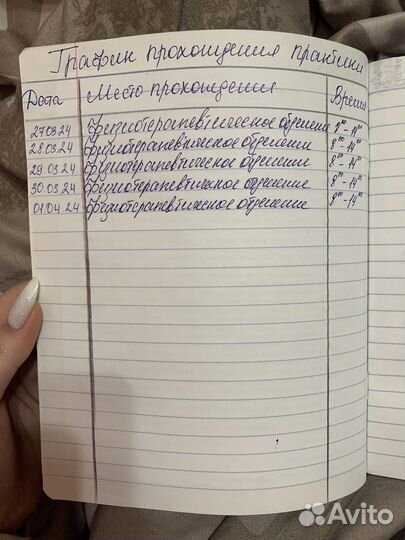 График прохождения практики
Дата Место прохождения Время
27.03.24 Физиотерапевтическое отделение 8⁰⁰-14⁰⁰
28.03.24 Физиотерапевтическое отделение 8⁰⁰-14⁰⁰
29.03.24 Физиотерапевтическое отделение 8⁰⁰-14⁰⁰
30.03.24 Физиотерапевтическое отделение 8⁰⁰-14⁰⁰
01.04.24 Физиотерапевтическое отделение 8⁰⁰-14⁰⁰
Avito